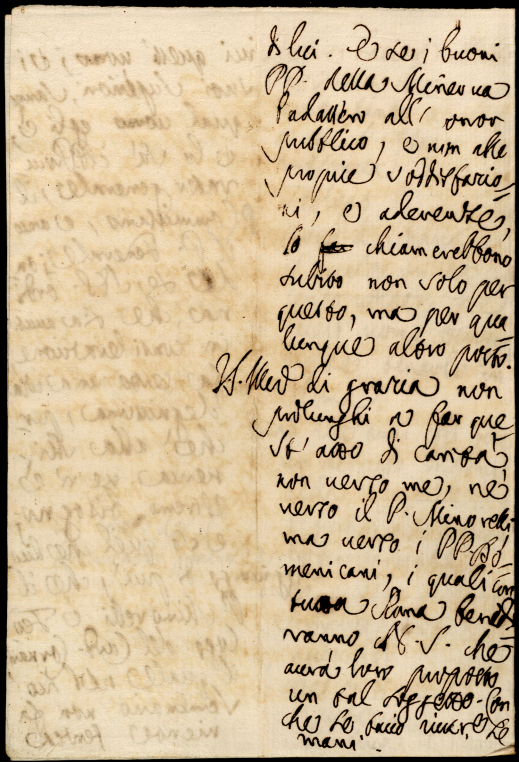 di lui. E se i buoni
PP. della Minerva
badassero all' onor
pubblico, e non alle
proprie soddisfazio-
ni, e aderenze,
lo chiamerebbono
subito non solo per
questo, ma per qua-
lunque altro posto.
V.S. Illma di grazia non
prolunghi a far que-
st' atto di carità
non verso me, nè
verso il P. Minorelli
ma verso i PP. Do-
menicani, i quali con
tutta Roma benedi-
ranno V.S. che
averà loro proposto
un tal soggetto. Con
che le bacio river. le
mani.